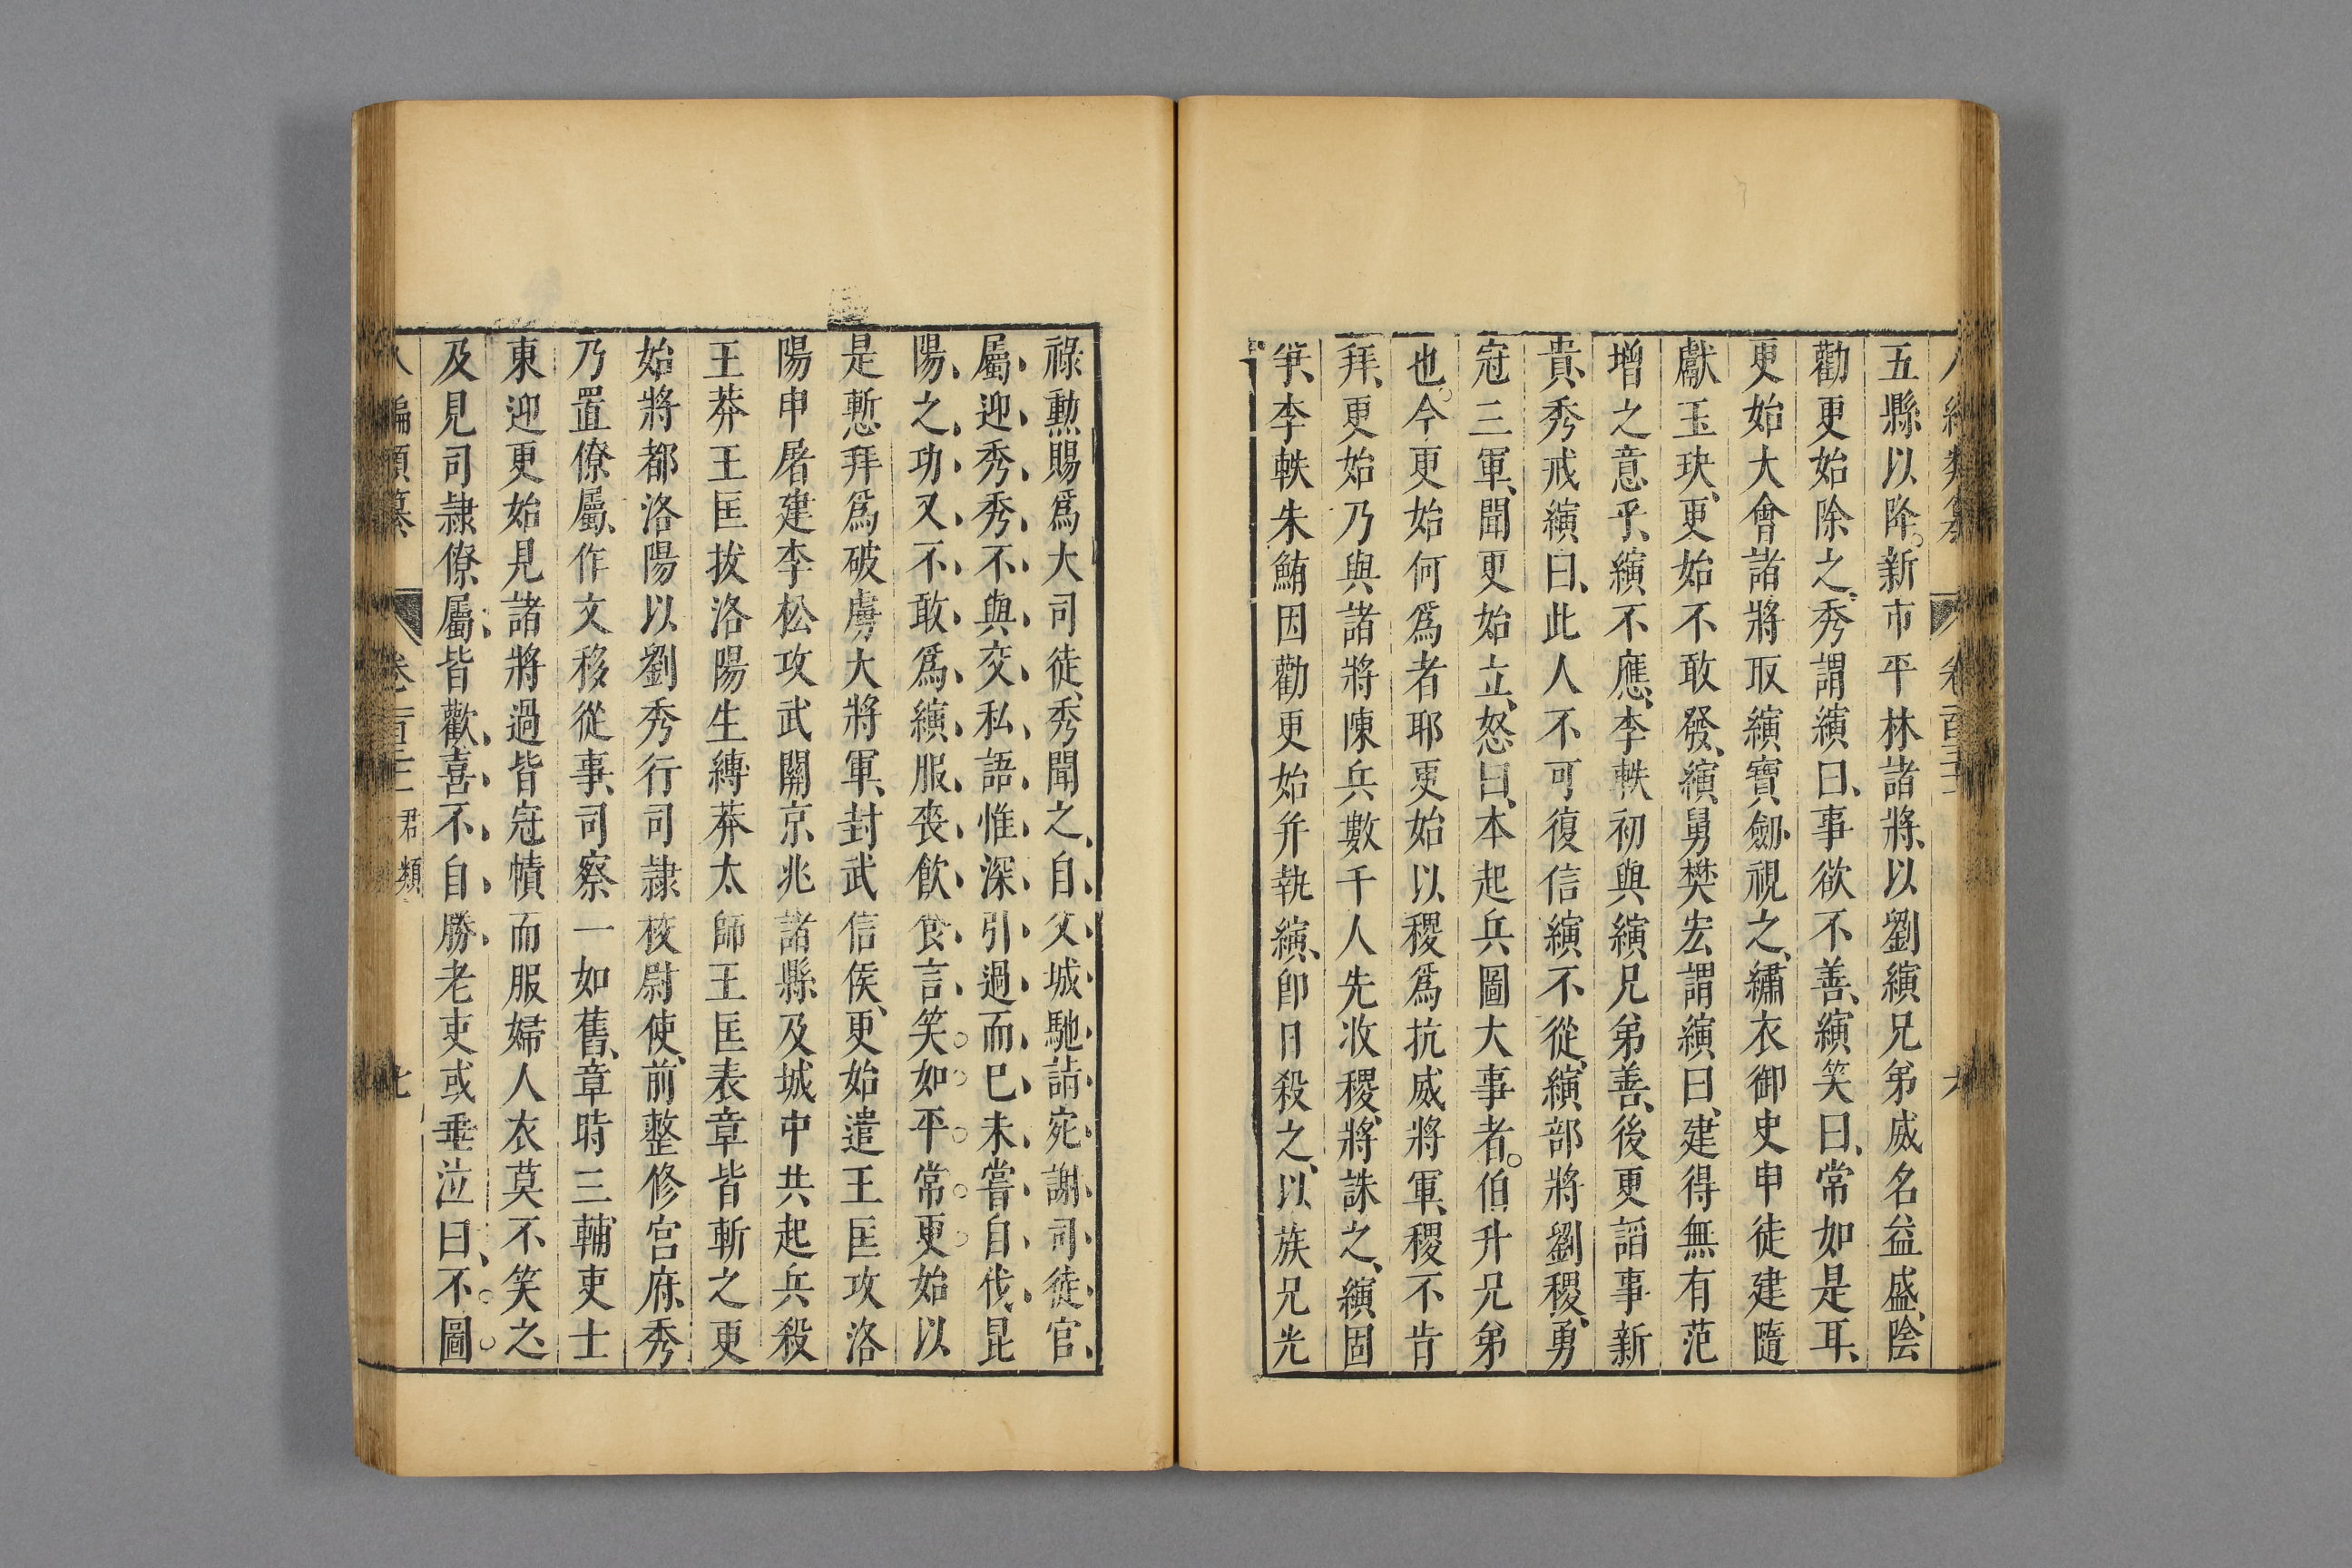 五縣以降。新市平林諸將、以劉縯兄弟威名益盛、陰
勸更始除之、秀謂縯曰、事欲不善、縯笑曰、常如是耳、
更始大會諸將取縯寶劒視之、繡衣御史申徒建隨
獻玉玦、更始不敢發、縯舅樊宏謂縯曰、建得無有范
增之意乎、縯不應、李軼初與縯兄弟善、後更謟事新
貴、秀戒縯曰、此人不可復信縯不從、縯部將劉稷、勇
冠三軍、聞更始立、怒曰、本起兵圖大事者。伯升兄弟
也。今更始何爲者耶更始以稷爲抗威將軍、稷不肯
拜、更始乃與諸將陳兵數千人先收稷、將誅之、縯固
爭、李軼朱鮪因勸更始并執縯、卽日殺之、以族兄光
祿勲賜爲大司徒、秀聞之、自父城馳詣宛謝司徒官、
屬迎秀秀不與交私語惟深引過而已未嘗自伐昆
陽之功又不敢爲縯服喪飲食言笑如平常更始以
是慙拜爲破虜大將軍、封武信侯、更始遣王匡攻洛
陽申屠建李松攻武關京兆諸縣及城中共起兵殺
王莽王匡拔洛陽生縛莽太師王匡表章皆斬之更
始將都洛陽以劉秀行司隷校尉使、前整修宮府、秀
乃置僚屬、作文移從事、司察一如舊、章時三輔吏士
東迎更始見諸將過皆冠幘而服婦人衣莫不笑之
及見司隷僚屬皆歡喜不自勝老吏或垂泣曰、不圖
編類纂 卷一百三 君類 七